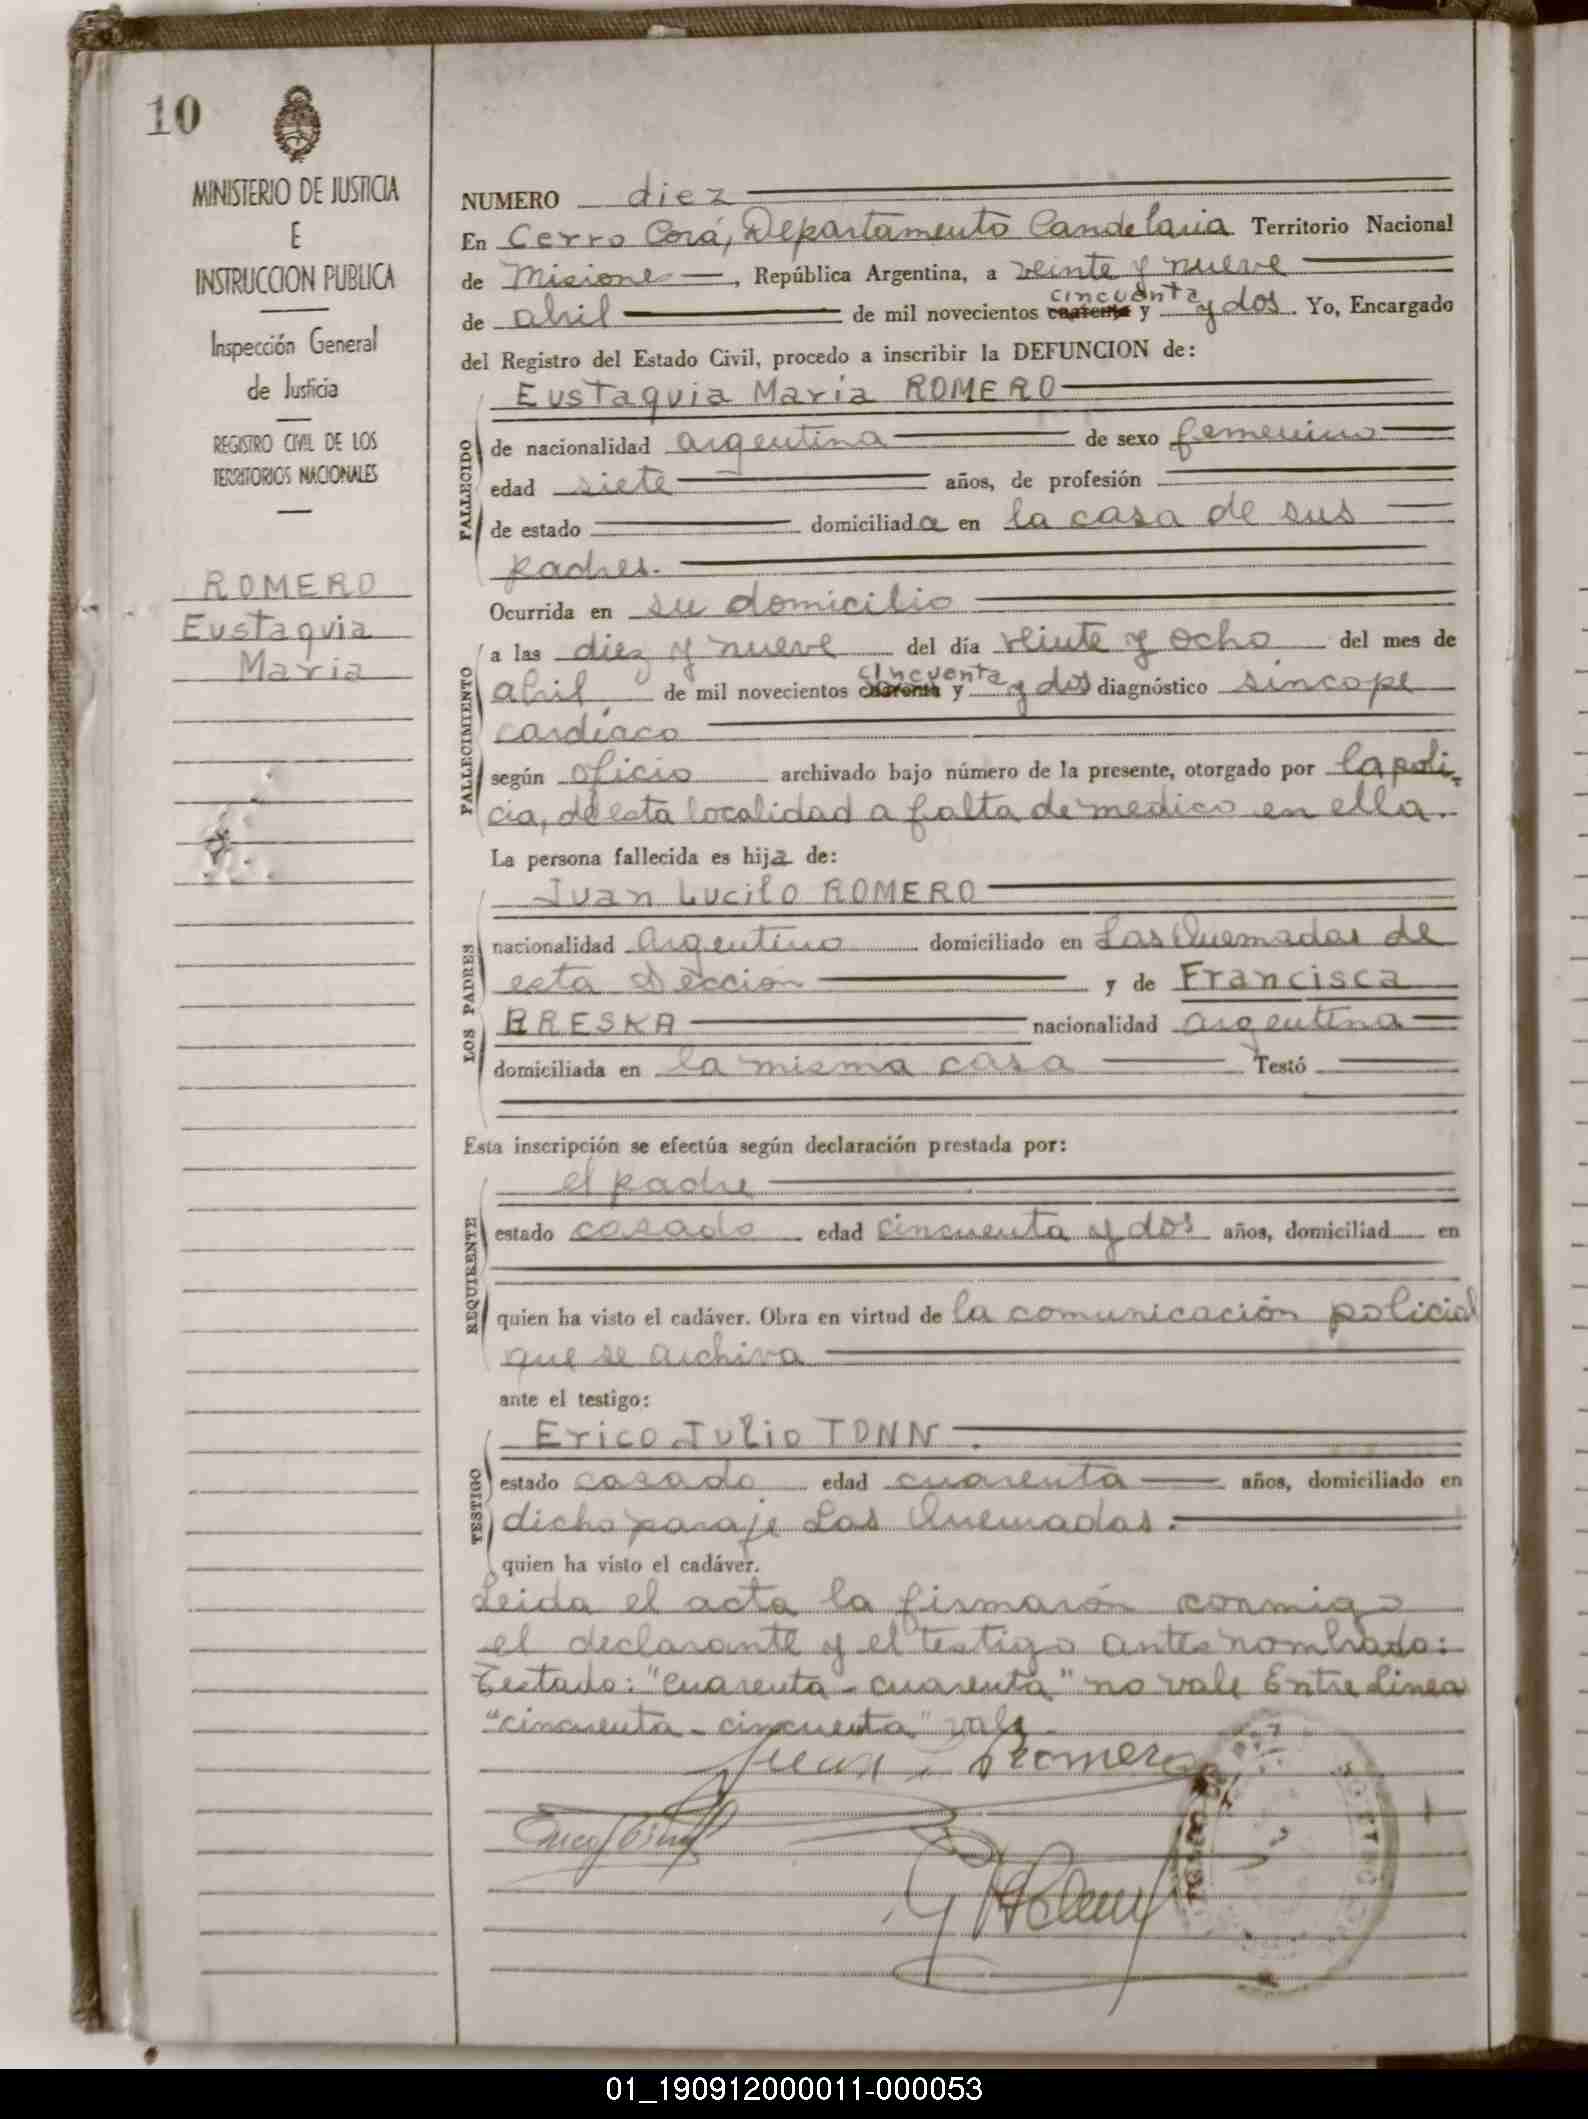 10
MINISTERIO DE JUSTICIA
E
INSTRUCCION PUBLICA
Inspección General
de Justicia
REGISTRO CIVIL DE LOS
TERRITORIOS NACIONALES
ROMERO
Eustaquia
Maria
NUMERO diez
En Cerro Corá, Departamento Candelaria Territorio Nacional
de Misiones, República Argentina, a veinte y nueve
de abril de mil novecientos cuarenta y cincuenta y dos. Yo, Encargado
del Registro del Estado Civil, procedo a inscribir la DEFUNCION de:
Eustaquia Maria ROMERO
FALLECIDO
de nacionalidad argentina de sexo femenino
edad siete años, de profesión
de estado domiciliada en la casa de sus
padres.
Ocurrida en su domicilio
FALLECIMIENTO
a las diez y nueve del día veinte y ocho del mes de
abril de mil novecientos cuarenta y cincuenta y dos diagnóstico síncope
cardíaco
según oficio archivado bajo número de la presente, otorgado por la poli-
cia, de esta localidad a falta de medico en ella.
La persona fallecida es hija de:
LOS PADRES
Juan Lucilo ROMERO
nacionalidad argentino domiciliado en Las Quemadas de
esta Sección y de Francisca
BRESKA nacionalidad argentina
domiciliada en la misma casa Testó
Esta inscripción se efectúa según declaración prestada por:
REQUIRENTE
el padre
estado casado edad cincuenta y dos años, domiciliad en
quien ha visto el cadáver. Obra en virtud de la comunicación policial
que se archiva
ante el testigo:
TESTIGO
Erico Julio TONN.
estado casado edad cuarenta años, domiciliado en
dicho paraje Las Quemadas.
quien ha visto el cadáver.
Leida el acta la firmarón conmigo
el declarante y el testigo antes nombrado:
Testado: "cuarenta - cuarenta" no vale Entre linea
"cincuenta - cincuenta" vale.
Juan Romero
01_190912000011-000053